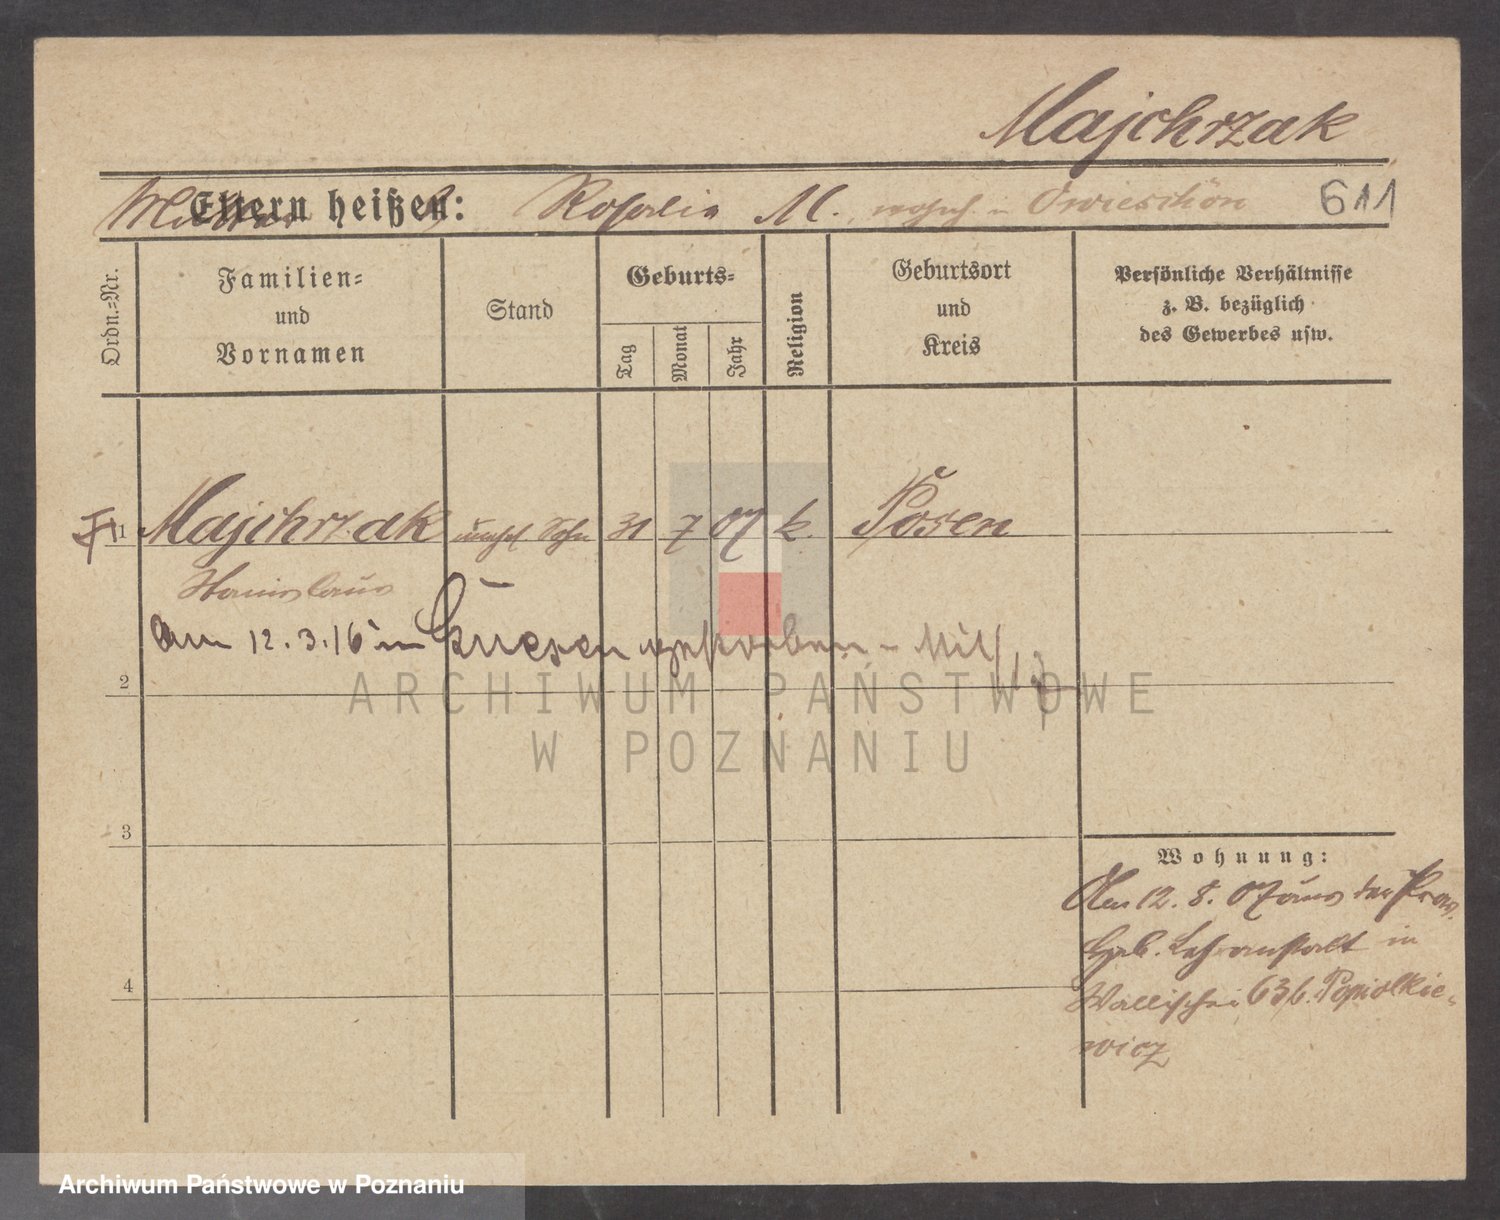 Majchrzak
Mutter
Eltern heißen: Rosalia M. wohnh. in Owieschön 611
Ordn.-Nr.
Familien-
und
Vornamen
Stand
Geburts-
Tag
Monat
Jahr
Religion
Geburtsort
und
Kreis
Persönliche Verhältnisse
z. B. bezüglich
des Gewerbes usw.
1 Majchrzak unehel Sohn 31 7 07 k. Posen
Stanislaus
am 12.3.16 in Gnesen gestorben -
2
ARCHIWUM PAŃSTWOWE
W POZNANIU
3
Wohnung:
Am 12. 8. 07 aus der Prov.
Geb. Lehranstalt in
4
Wallischei 63 b. Popiolkie-
wicz
Archiwum Państwowe w Poznaniu